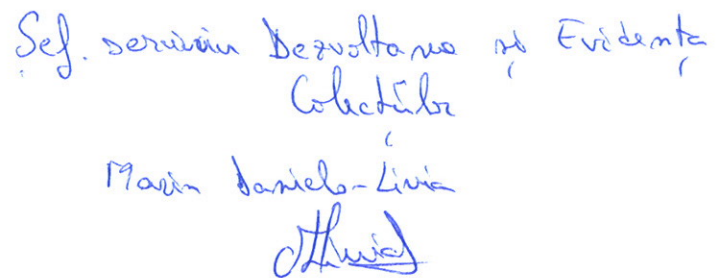 Șef. serviciu Dezvoltarea și Evidența
Colecțiilor
Marin Daniela-Livia